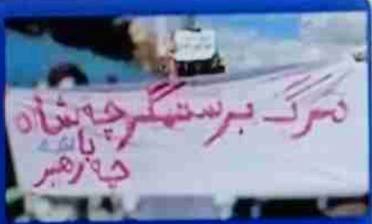 مرگ بر ستمگر چه شاه
با
چه رهبر